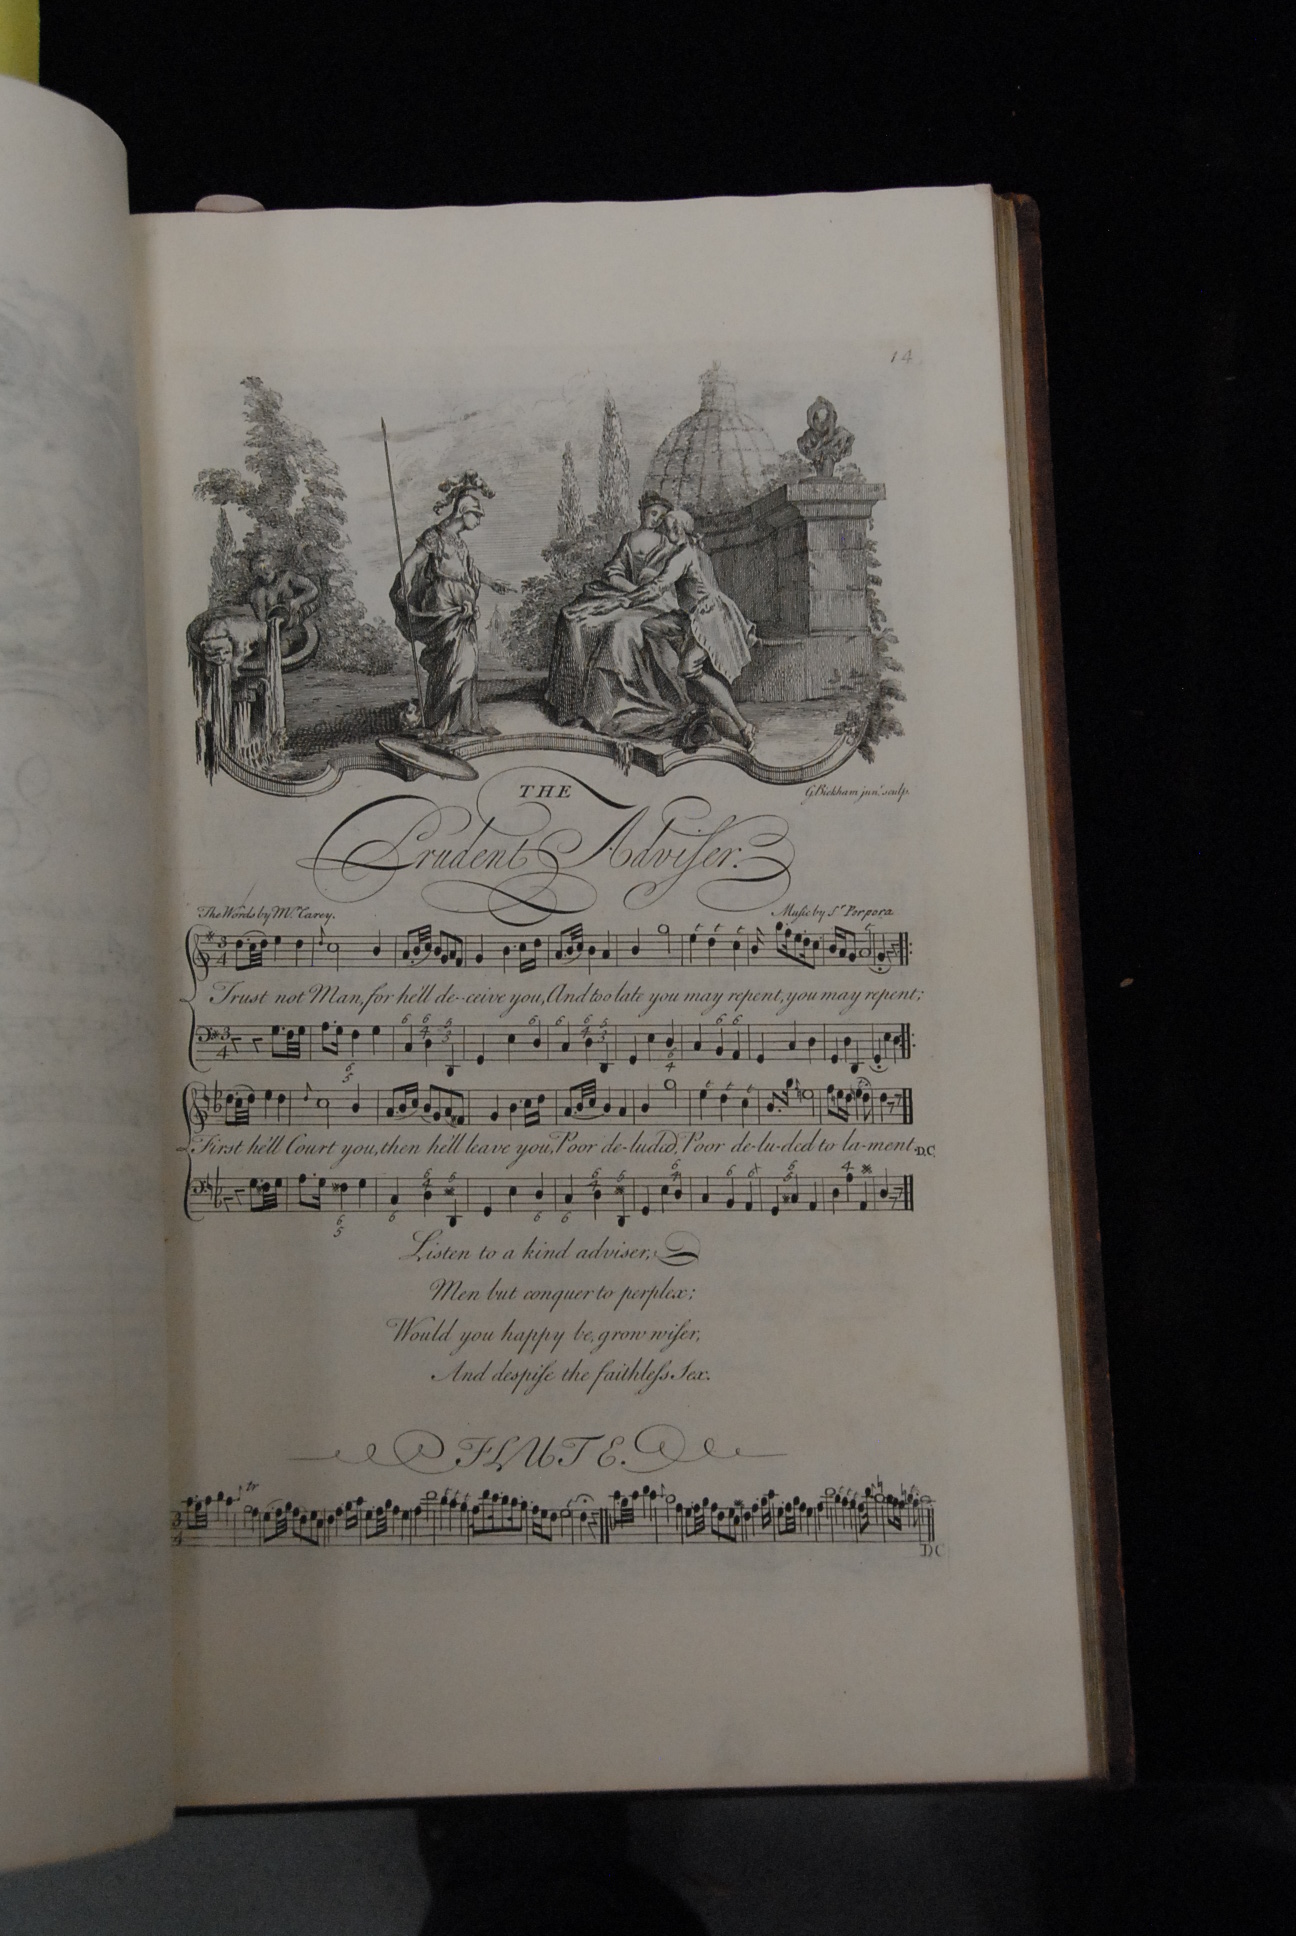 14
THE
G. Bickham junr. sculp.
Prudent Adviſer.
The Words by Mr. Carey.
Muſic by Sr. Porpora
Trust not Man, for he'll de--ceive you, And too late you may repent, you may repent;
First he'll Court you, then he'll leave you, Poor de-luded, Poor de-lu-ded to la-ment. D.C.
Listen to a kind adviser,
Men but conquer to perplex;
Would you happy be, grow wiſer,
And despiſe the faithleſs Sex.
FLUTE.
tr
DC